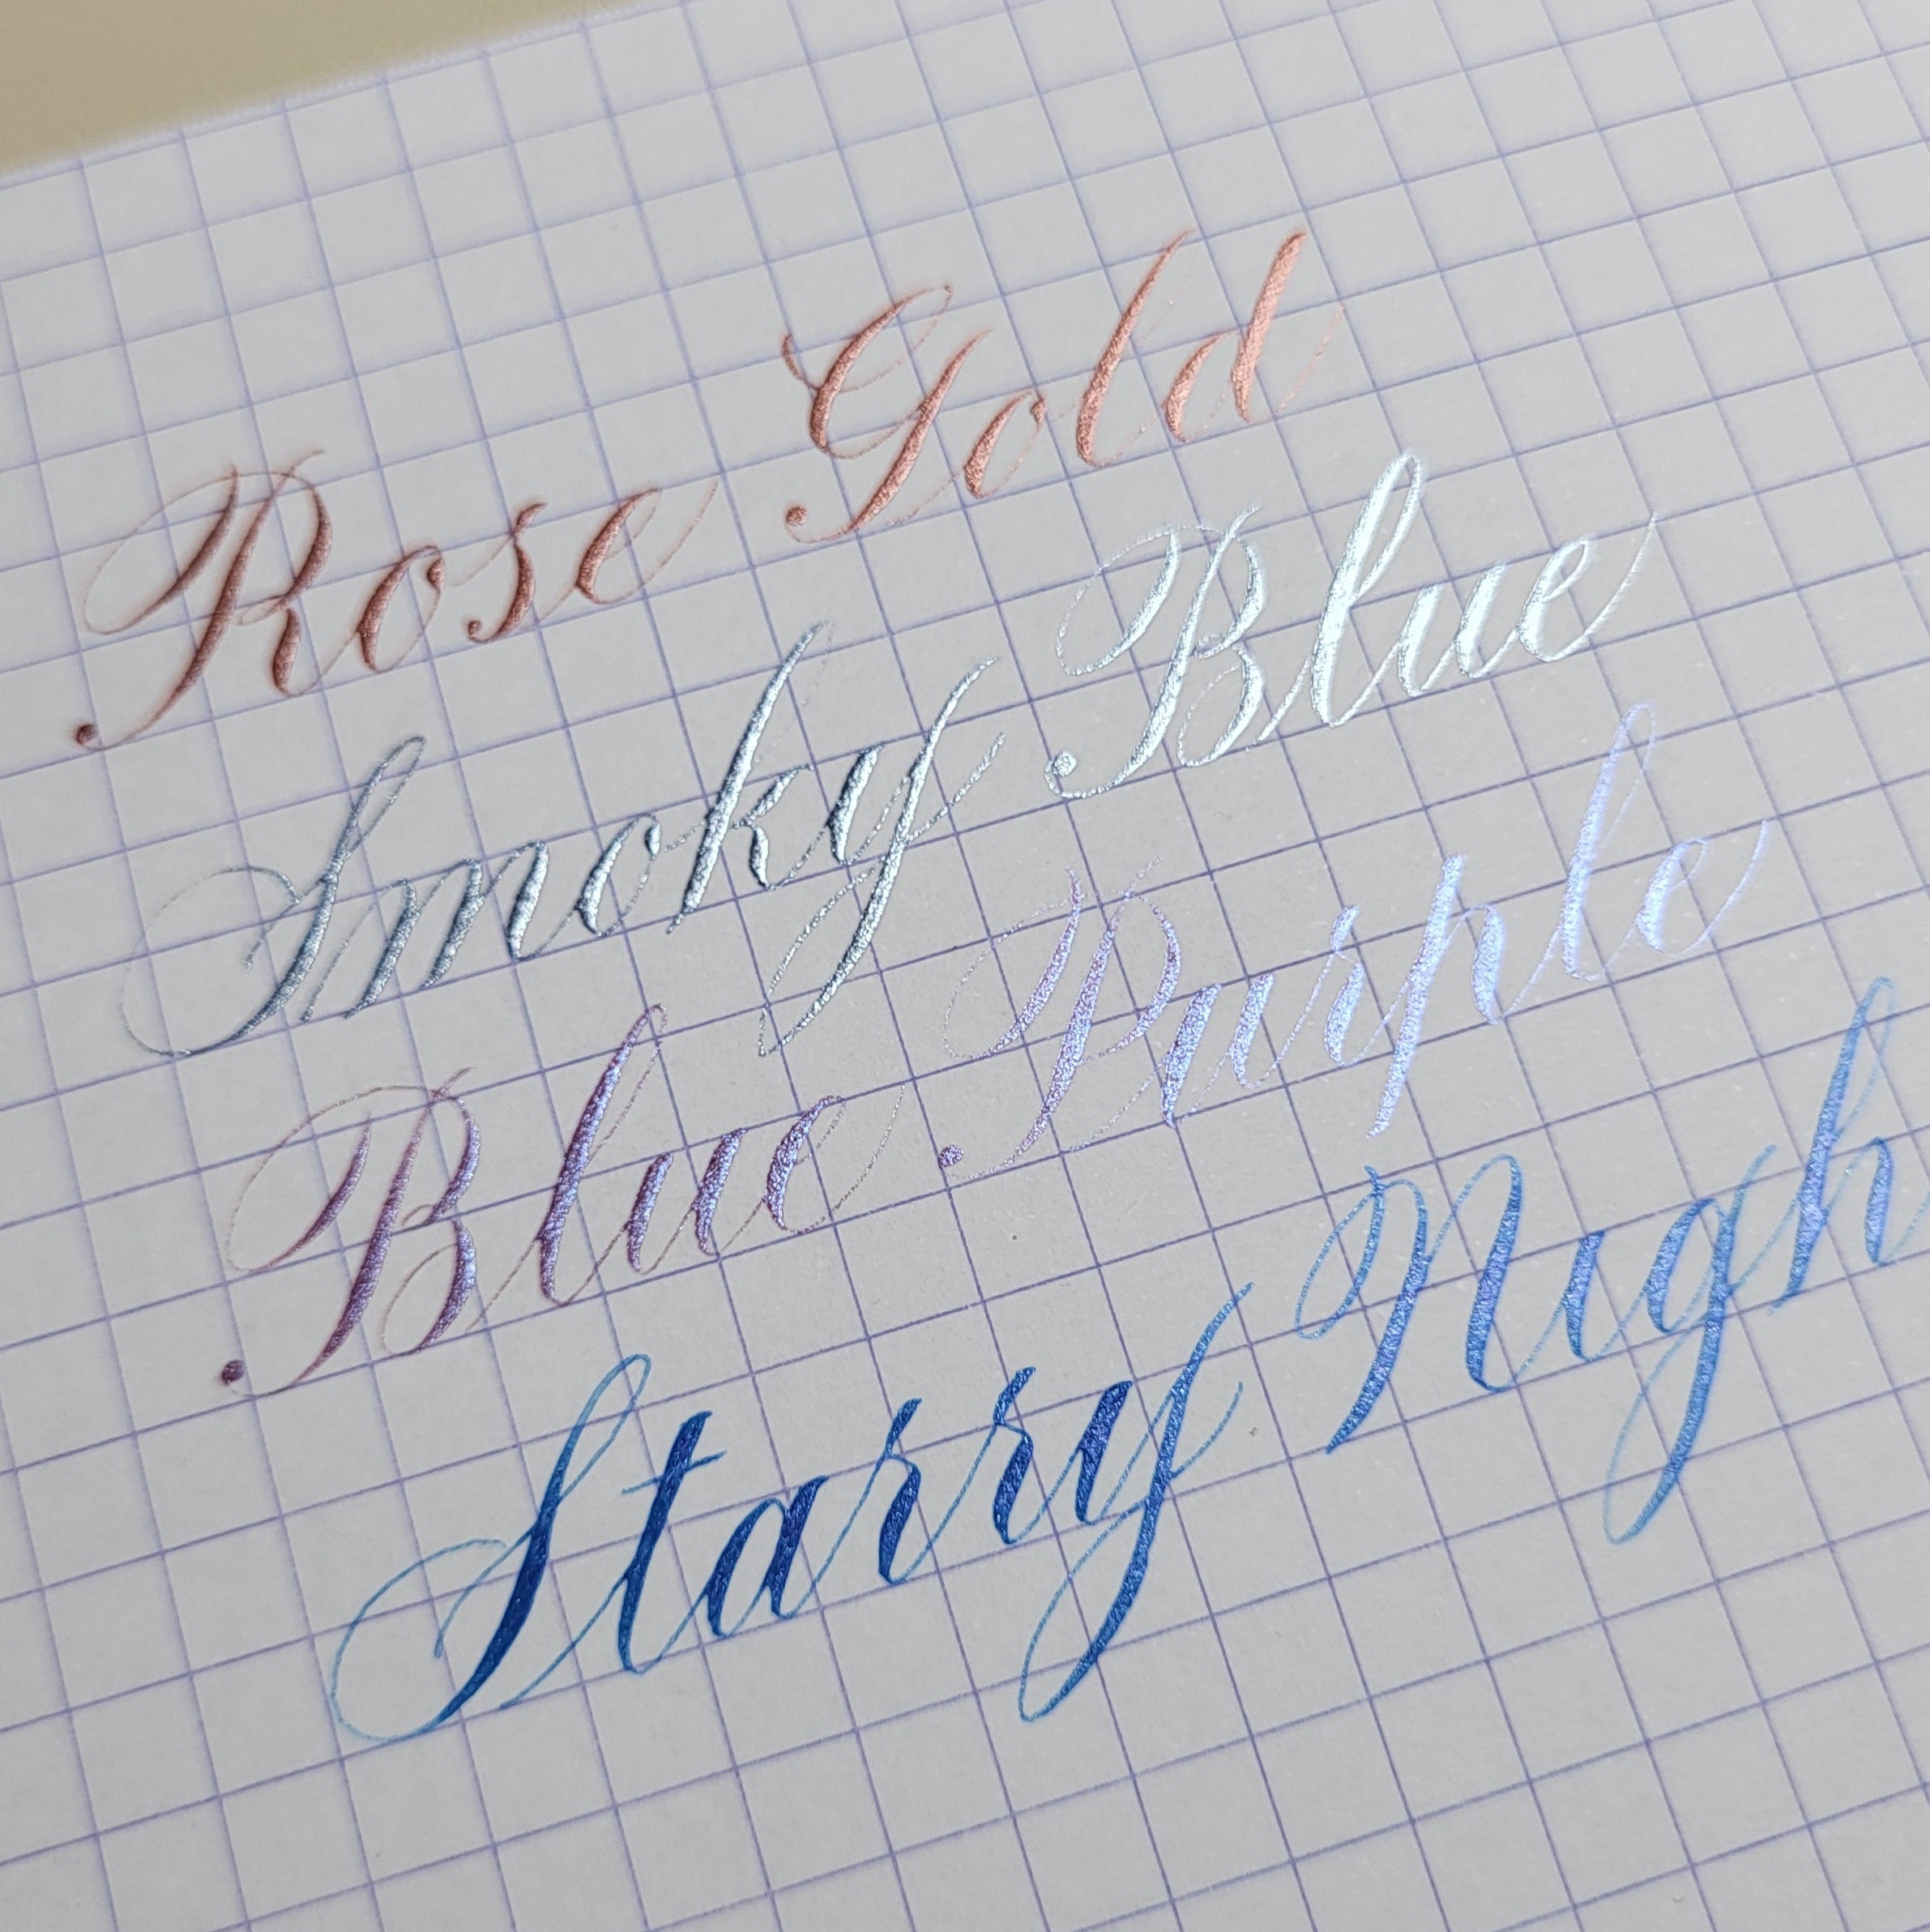 Rose Gold
Smoky Blue
Blue Purple
Starry Nigh